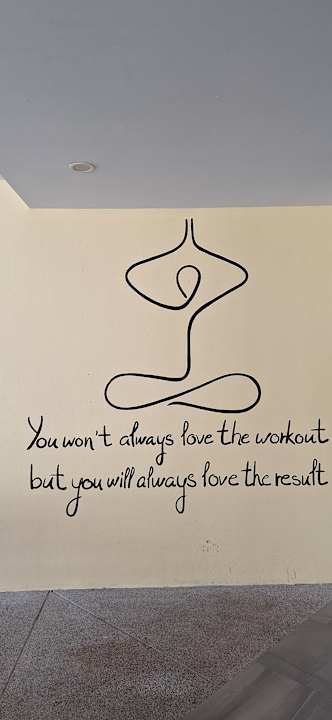 You won't always love the workout
but you will always love the result